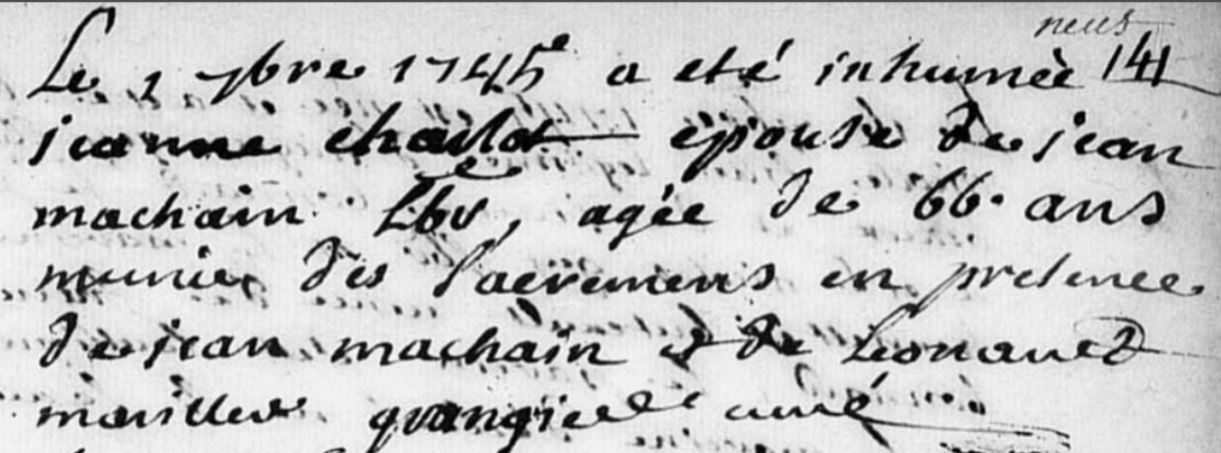 neuf
Le 1 7bre 1745e a eté inhumèe 141
jeanne épouse de jean
machain Lbr, agée de 66. ans
munie des Sacremens en presence
de jean machain et de Leonard
curé